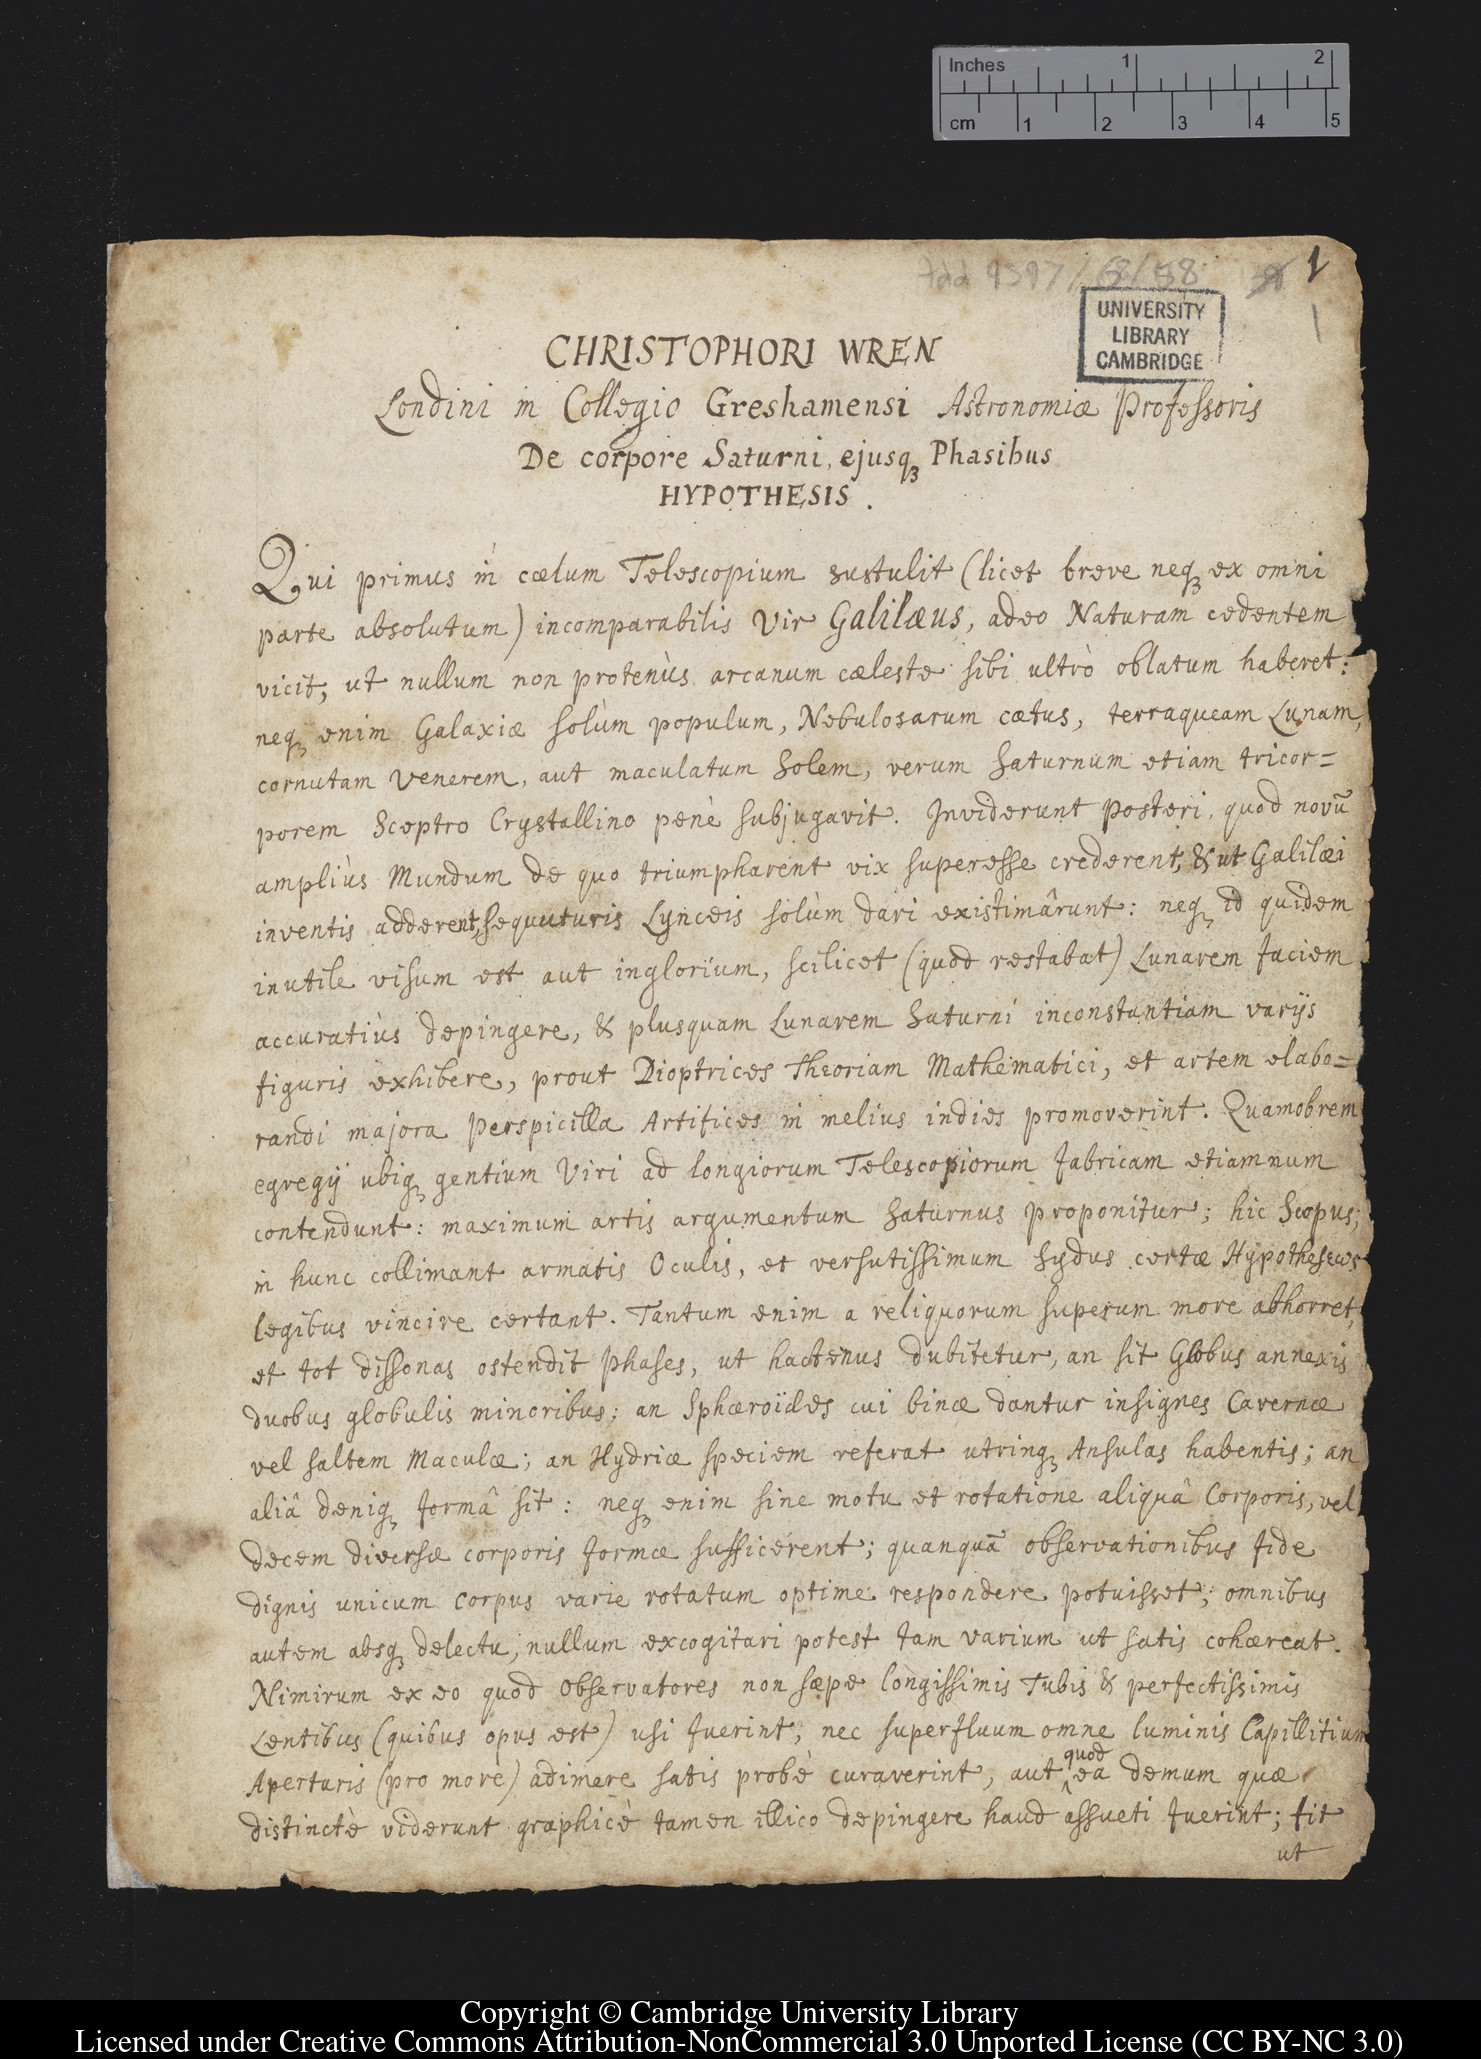 Inches 1 2
cm 1 2 3 4 5
Add 9597/ /8/58 1
UNIVERSITY
LIBRARY
CAMBRIDGE
CHRISTOPHORI WREN
Londini in Collegio Greshamensi Astronomiæ Professoris
De corpore Saturni, ejusqꝫ Phasibus
HYPOTHESIS.
Qui primus in cœlum Telescopium sustulit (licet breve neqꝫ ex omni
parte absolutum) incomparabilis Vir Galilæus, adeo Naturam cedentem
vicit, ut nullum non protenùs arcanum cæleste sibi ultrò oblatum haberet:
neqꝫ enim Galaxiæ solùm populum, Nebulosarum cœtus, terraqueam Lunam,
cornutam Venerem, aut maculatum Solem, verum Saturnum etiam tricor=
porem Sceptro Crystallino penè subjugavit. Inviderunt posteri, quod novū
ampliùs Mundum de quo triumpharent vix superesse crederent, & ut Galilæi
inventis adderent, sequuturis Lynceis solùm dari existimârunt: neqꝫ id quidem
inutile visum est aut inglorium, scilicet (quod restabat) Lunarem faciem
accuratiùs depingere, & plusquam Lunarem Saturni inconstantiam varijs
figuris exhibere, prout Dioptrices Theoriam Mathematici, et artem elabo=
randi majora Perspicilla Artifices in melius indies promoverint. Quamobrem
egregij ubiqꝫ gentium Viri ad longiorum Telescopiorum fabricam etiamnum
contendunt: maximum artis argumentum Saturnus proponitur; hic Scopus;
in hunc collimant armatis Oculis, et versutissimum Sydus certæ Hypotheseωs
legibus vincire certant. Tantum enim a reliquorum superum more abhorret,
et tot dissonas ostendit phases, ut hactenus dubitetur, an sit Globus annexis
duobus globulis minoribus; an Sphæroïdes cui binæ dantur insignes Cavernæ
vel saltem Maculæ; an Hydriæ speciem referat utrinqꝫ Ansulas habentis; an
aliâ deniqꝫ formâ sit: neqꝫ enim sine motu et rotatione aliquâ Corporis, vel
decem diversæ corporis formæ sufficerent; quanquā observationibus fide
dignis unicum corpus varie rotatum optime respondere potuisset; omnibus
autem absqꝫ delectu, nullum excogitari potest tam varium ut satis cohæreat.
Nimirum ex eo quod observatores non sæpe longissimis Tubis & perfectissimis
Lentibus (quibus opus est) usi fuerint, nec superfluum omne luminis Capillitium
Aperturis (pro more) adimere satis probè curaverint, aut quod ea demum quæ
distinctè viderunt graphicè tamen illico depingere haud assueti fuerint; fit
ut
Copyright © Cambridge University Library
Licensed under Creative Commons Attribution-NonCommercial 3.0 Unported License (CC BY-NC 3.0)